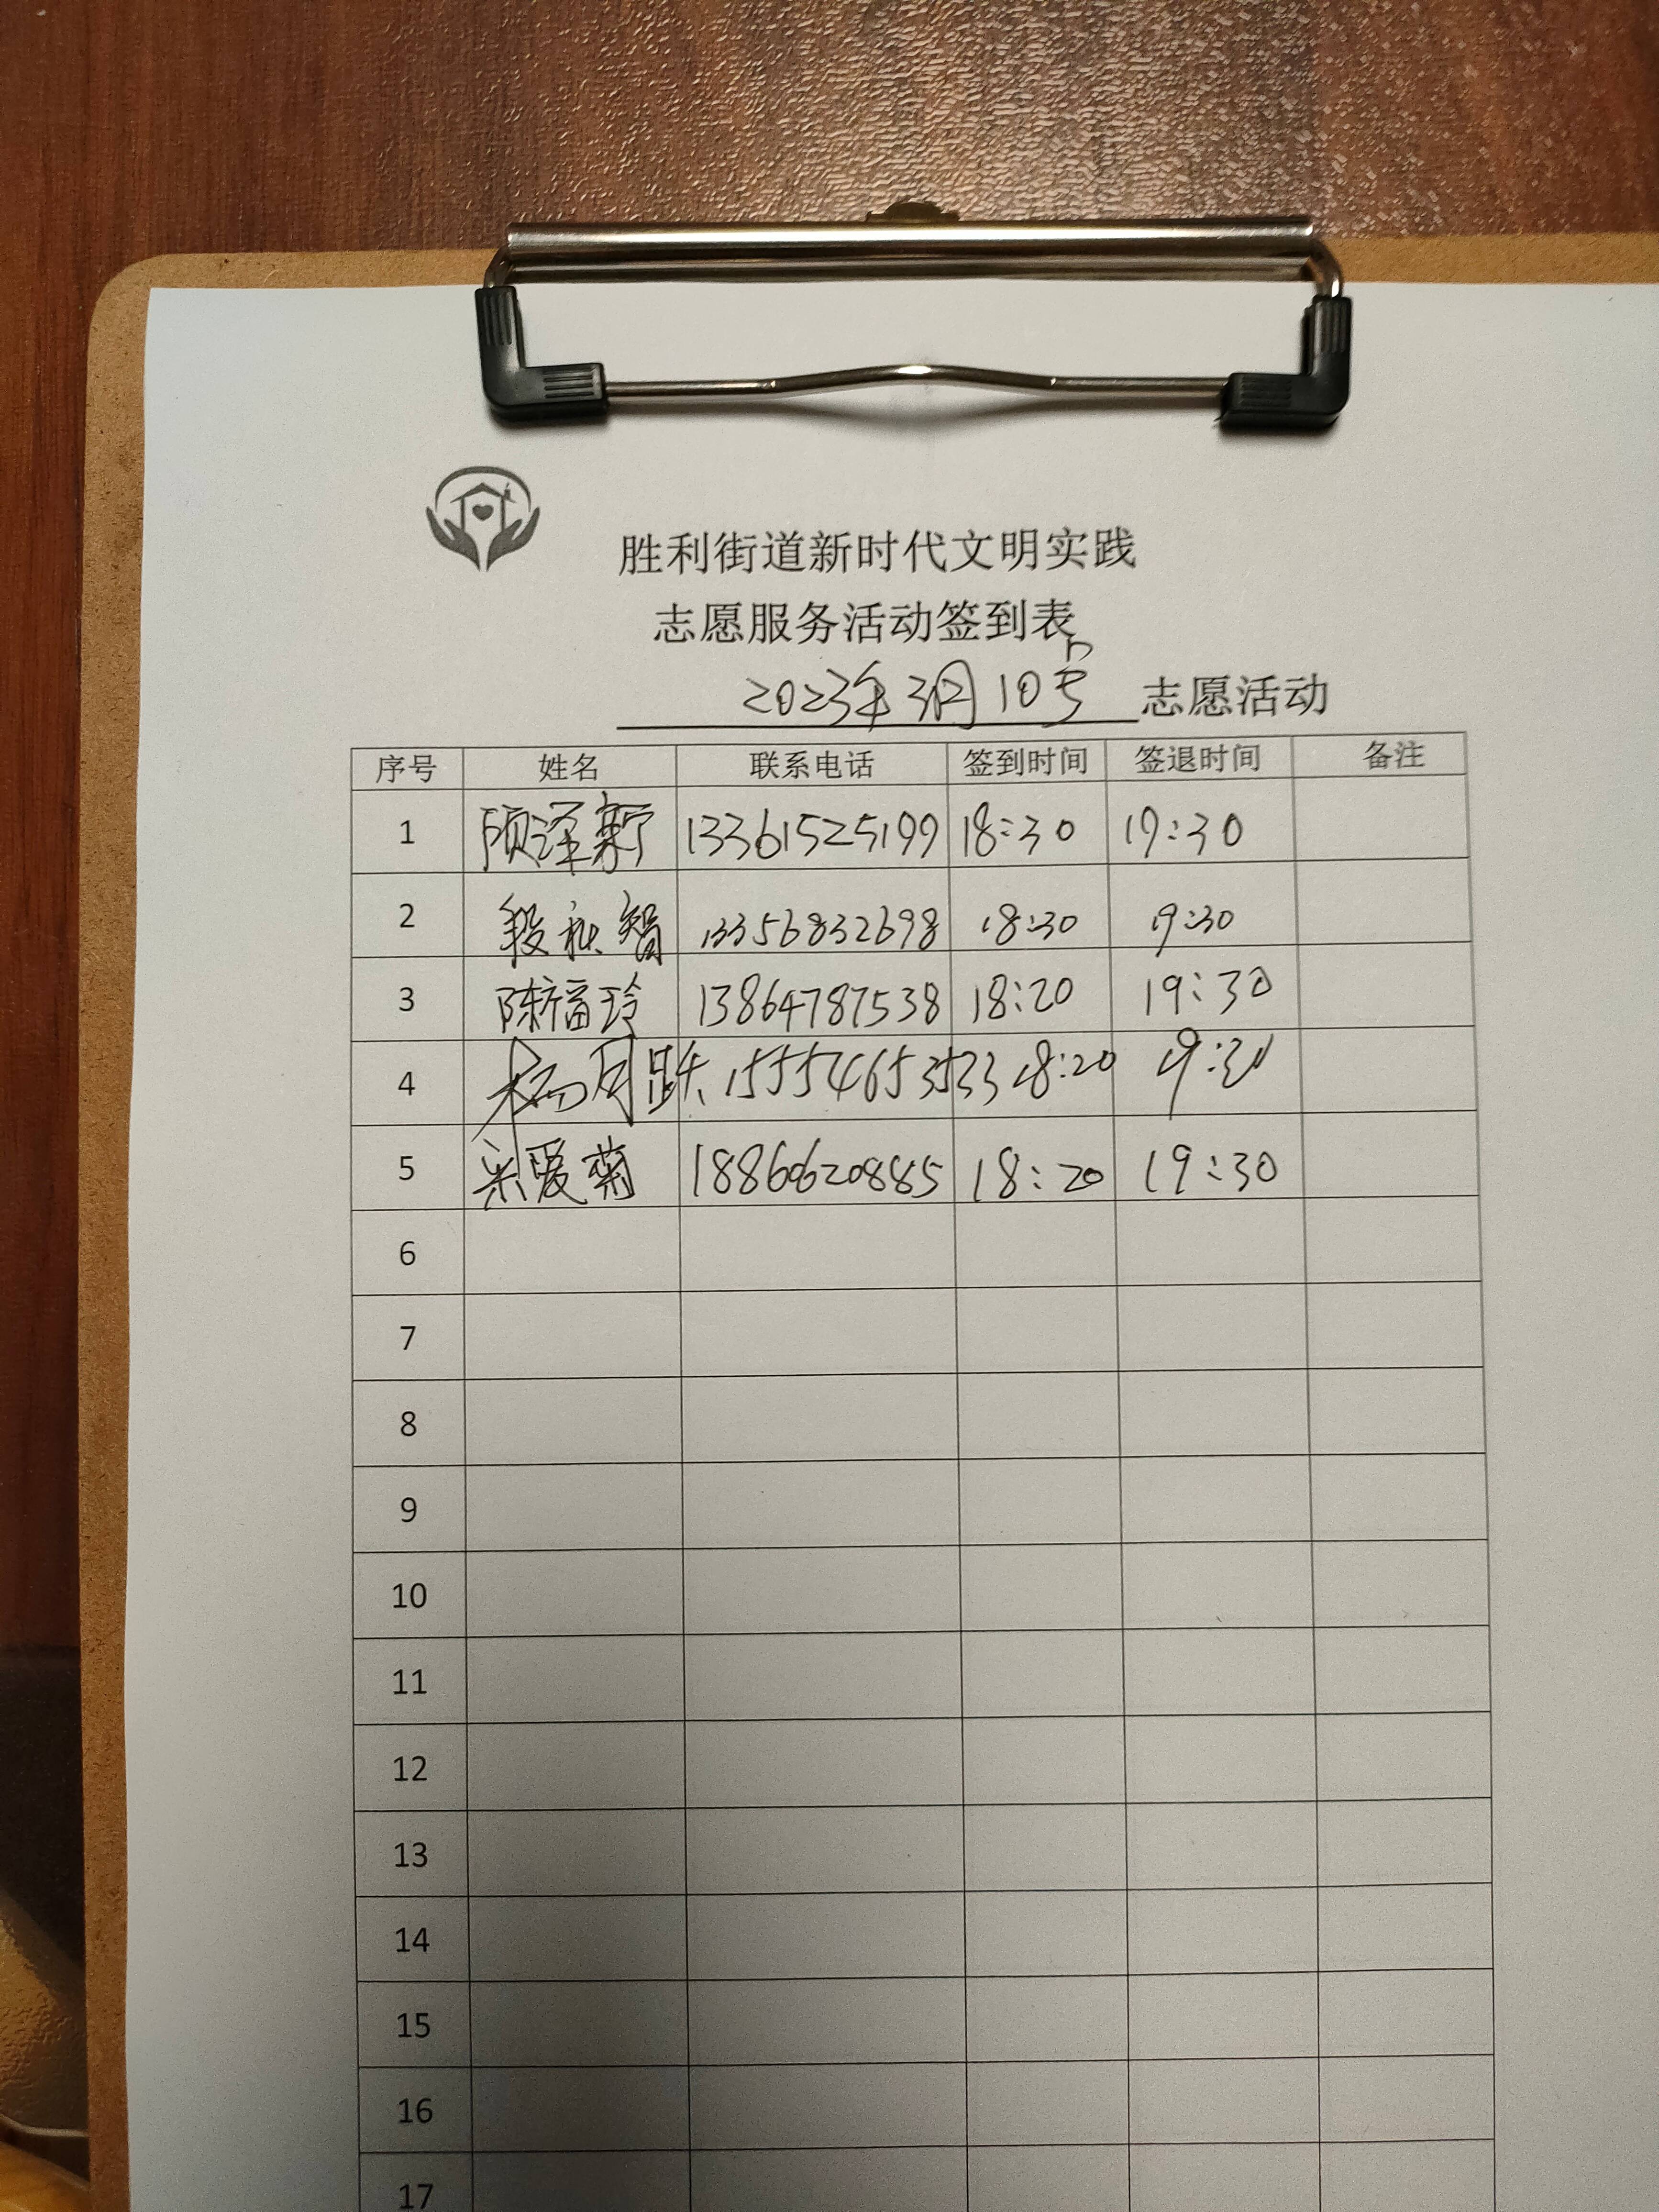 胜利街道新时代文明实践
志愿服务活动签到表
2023年3月10号 志愿活动
序号 姓名 联系电话 签到时间 签退时间 备注
1 顾泽新 13361525199 18:30 19:30
2 段秋智 13356832698 18:30 19:30
3 陈福玲 13864787538 18:20 19:30
4 杨月跃 15554653533 18:20 19:30
5 宋爱菊 18860620885 18:20 19:30
6
7
8
9
10
11
12
13
14
15
16
17